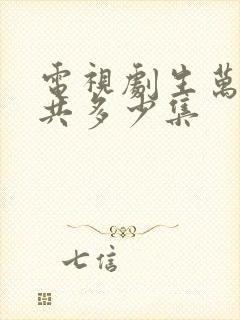 電視劇生萬
共多少集
七信